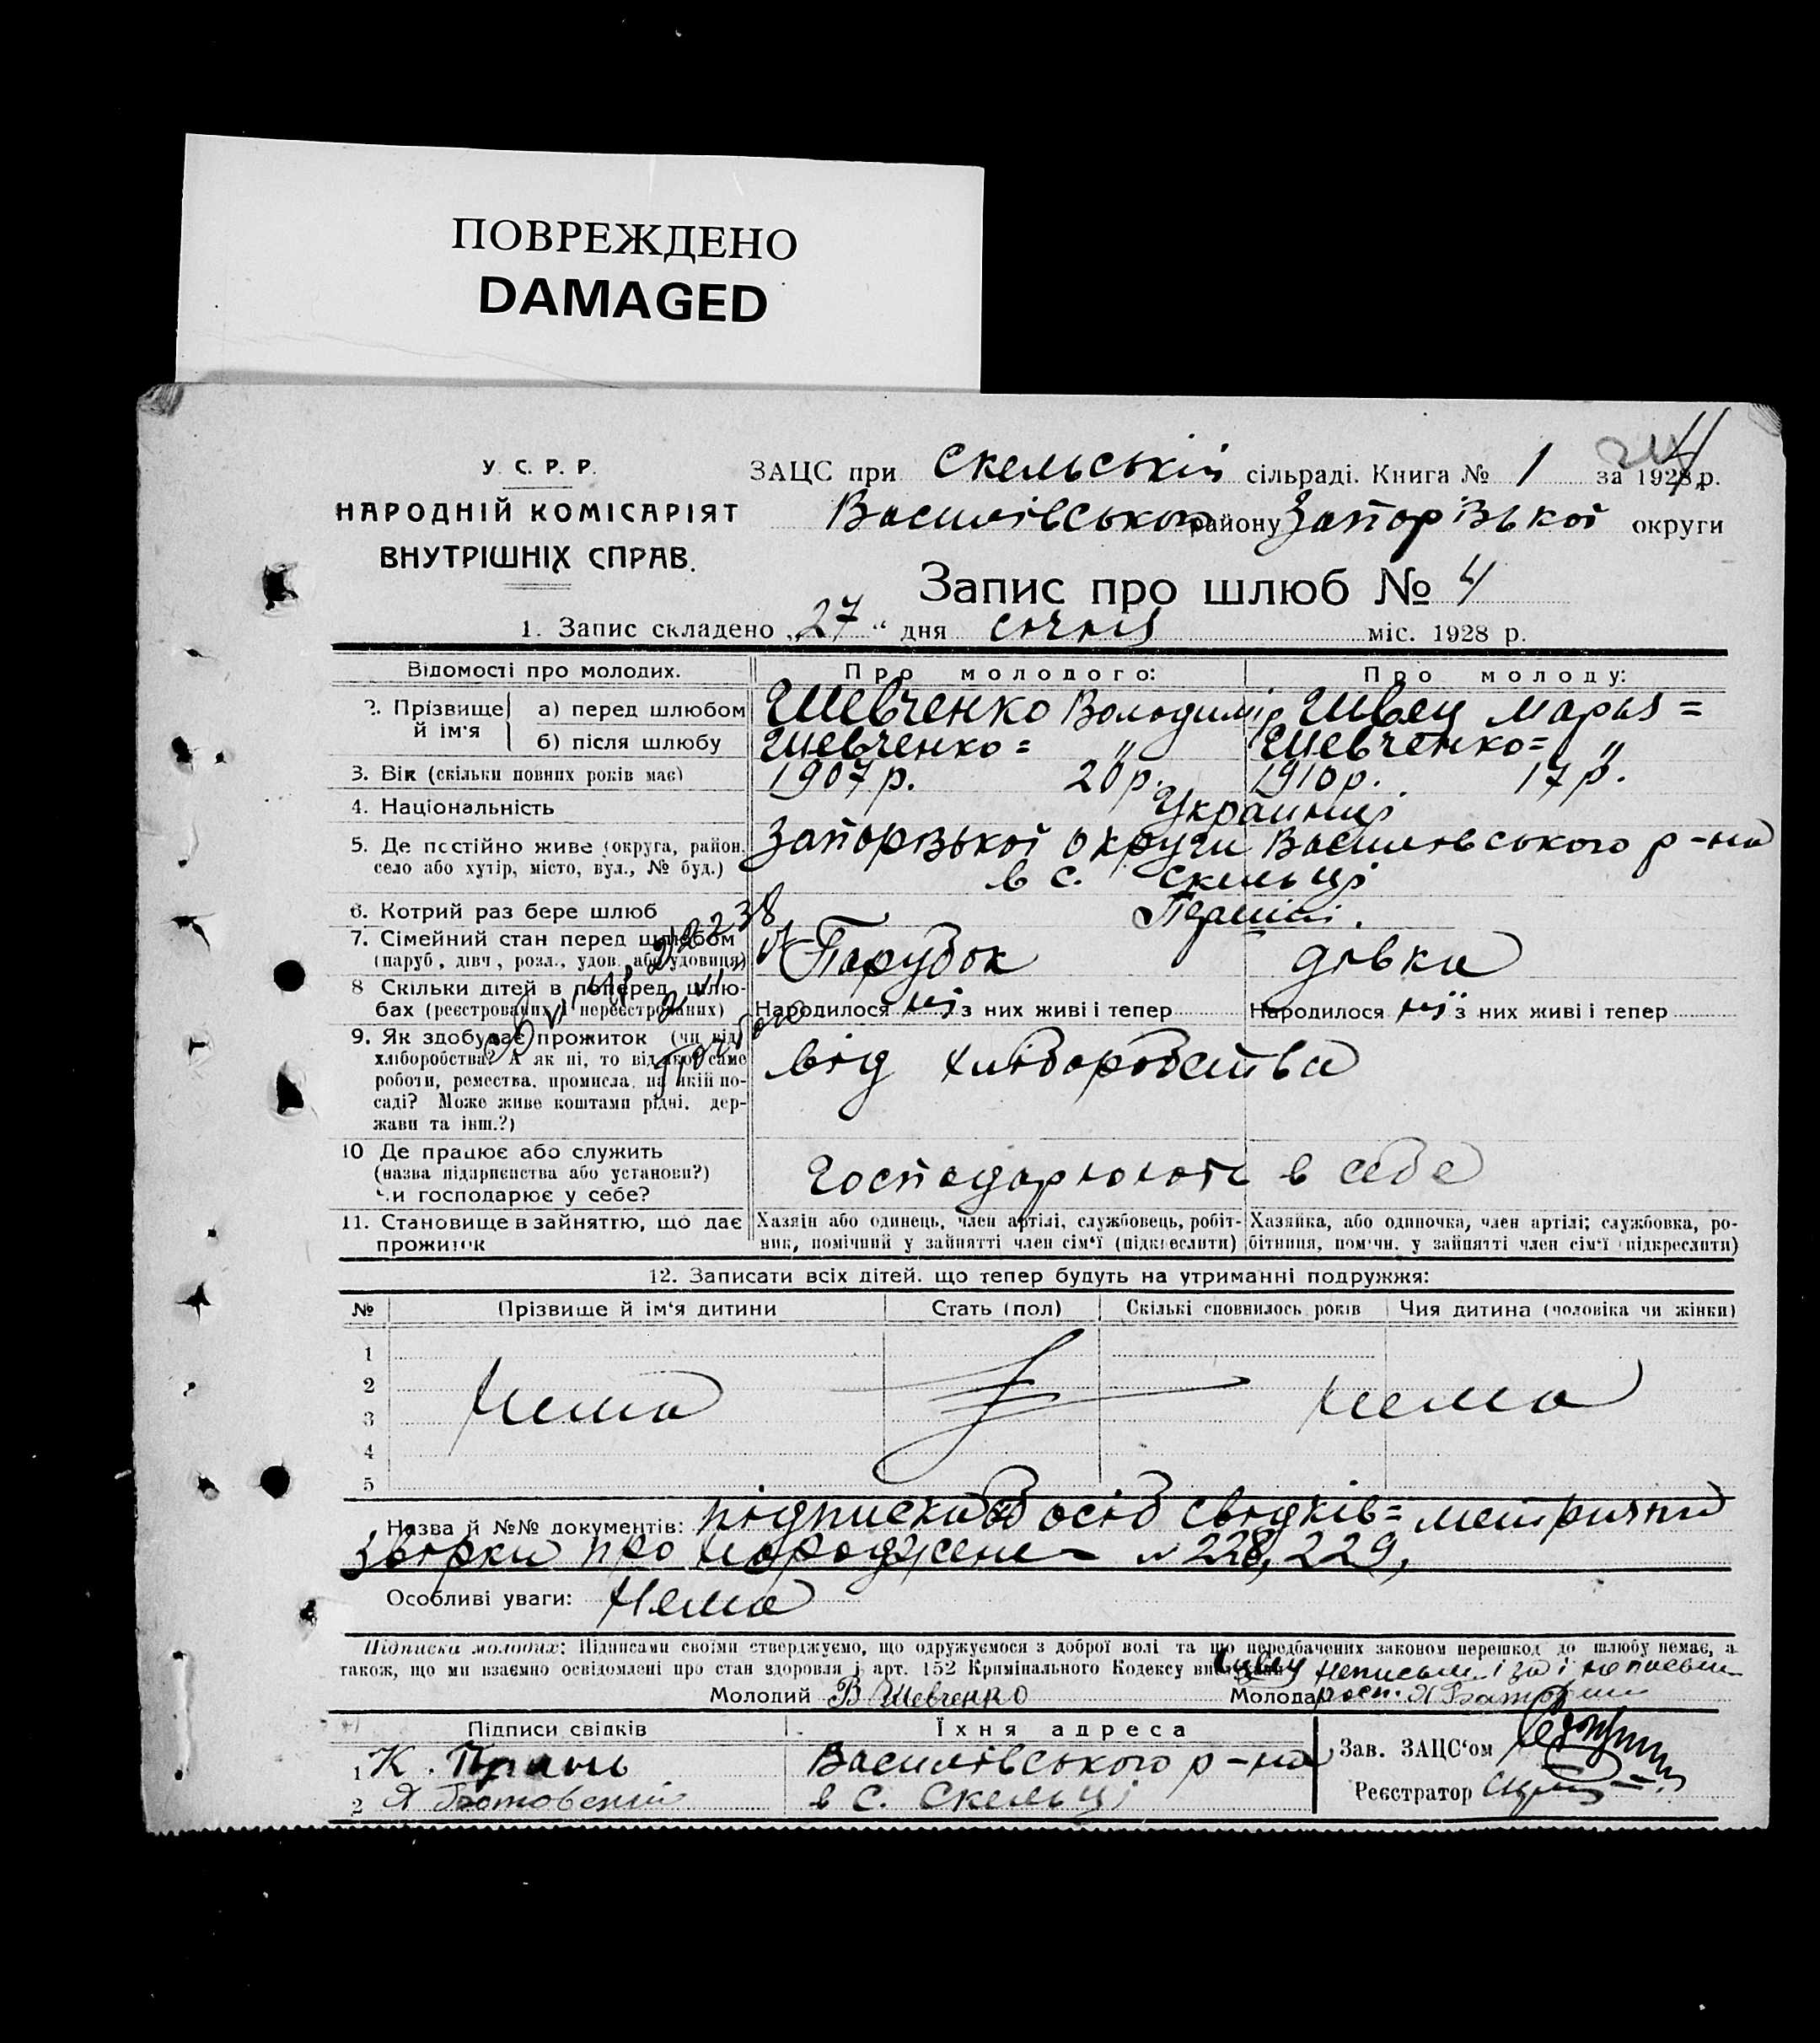 ПОВРЕЖДЕНО
DAMAGED
У. С. Р. Р.
НАРОДНІЙ КОМІСАРІЯТ
ВНУТРІШНІХ СПРАВ.
ЗАЦС при Скельській сільраді. Книга № 1 за 1928 р.
Василівського району Запорізької округи
Запис про шлюб № 4
1. Запис складено „27“ дня січня міс. 1928 р.
Відомості про молодих. Про молодого: Про молоду:
2. Прізвище й ім'я а) перед шлюбом Шевченко Володимір Швец Марія =
б) після шлюбу Шевченко = „ Шевченко = „
3. Вік (скільки повних років має) 1907 р. 20 р. 1910 р. 17 р.
4. Національність Украинці
5. Де постійно живе (округа, район, Запорізької округи Василівського р-на
село або хутір, місто, вул., № буд.) в с. Скельці
6. Котрий раз бере шлюб Перший.
7. Сімейний стан перед шлюбом Парубок дівка
(паруб., дівч., розл., удов. або удовиця)
8 Скільки дітей в поперед. шлю-
бах (реєстрованих і нереєстрованих) Народилося ні з них живі і тепер Народилося ні з них живі і тепер
9. Як здобуває прожиток (чи від від хліборобства
хліборобства? А як ні, то від якої саме
роботи, ремества, промисла, на якій по-
саді? Може живе коштами рідні, дер-
жави та інш.?)
10 Де працює або служить
(назва підприємства або установи?) Господарюють в себе
Чи господарює у себе?
11. Становище в зайняттю, що дає Хазяїн або одинець, член артілі, службовець, робіт- Хазяйка, або одиночка, член артілі; службовка, ро-
прожиток ник, помічний у зайнятті член сім'ї (підкреслити) бітниця, помічн. у зайнятті член сім'ї (підкреслити)
12. Записати всіх дітей, що тепер будуть на утриманні подружжя:
№ Прізвище й ім'я дитини Стать (пол) Скількі сповнилось років Чия дитина (чоловіка чи жінки)
1
2 Нема нема
3
4
5
Назва й №№ документів: підписки осіб свідків = метричні
звірки про народжене № 228, 229,
Особливі уваги: Нема
Підписка молодих: Підписами своїми стверджуємо, що одружуємося з доброї волі та що передбачених законом перешкод до шлюбу немає, а
також, що ми взаємно освідомлені про стан здоровля і арт. 152 Кримінального Кодексу
Молодий В Шевченко Молода
Підписи свідків Їхня адреса
1 К. Василівського р-на Зав. ЗАЦС'ом
2 в с. Скельці Реєстратор